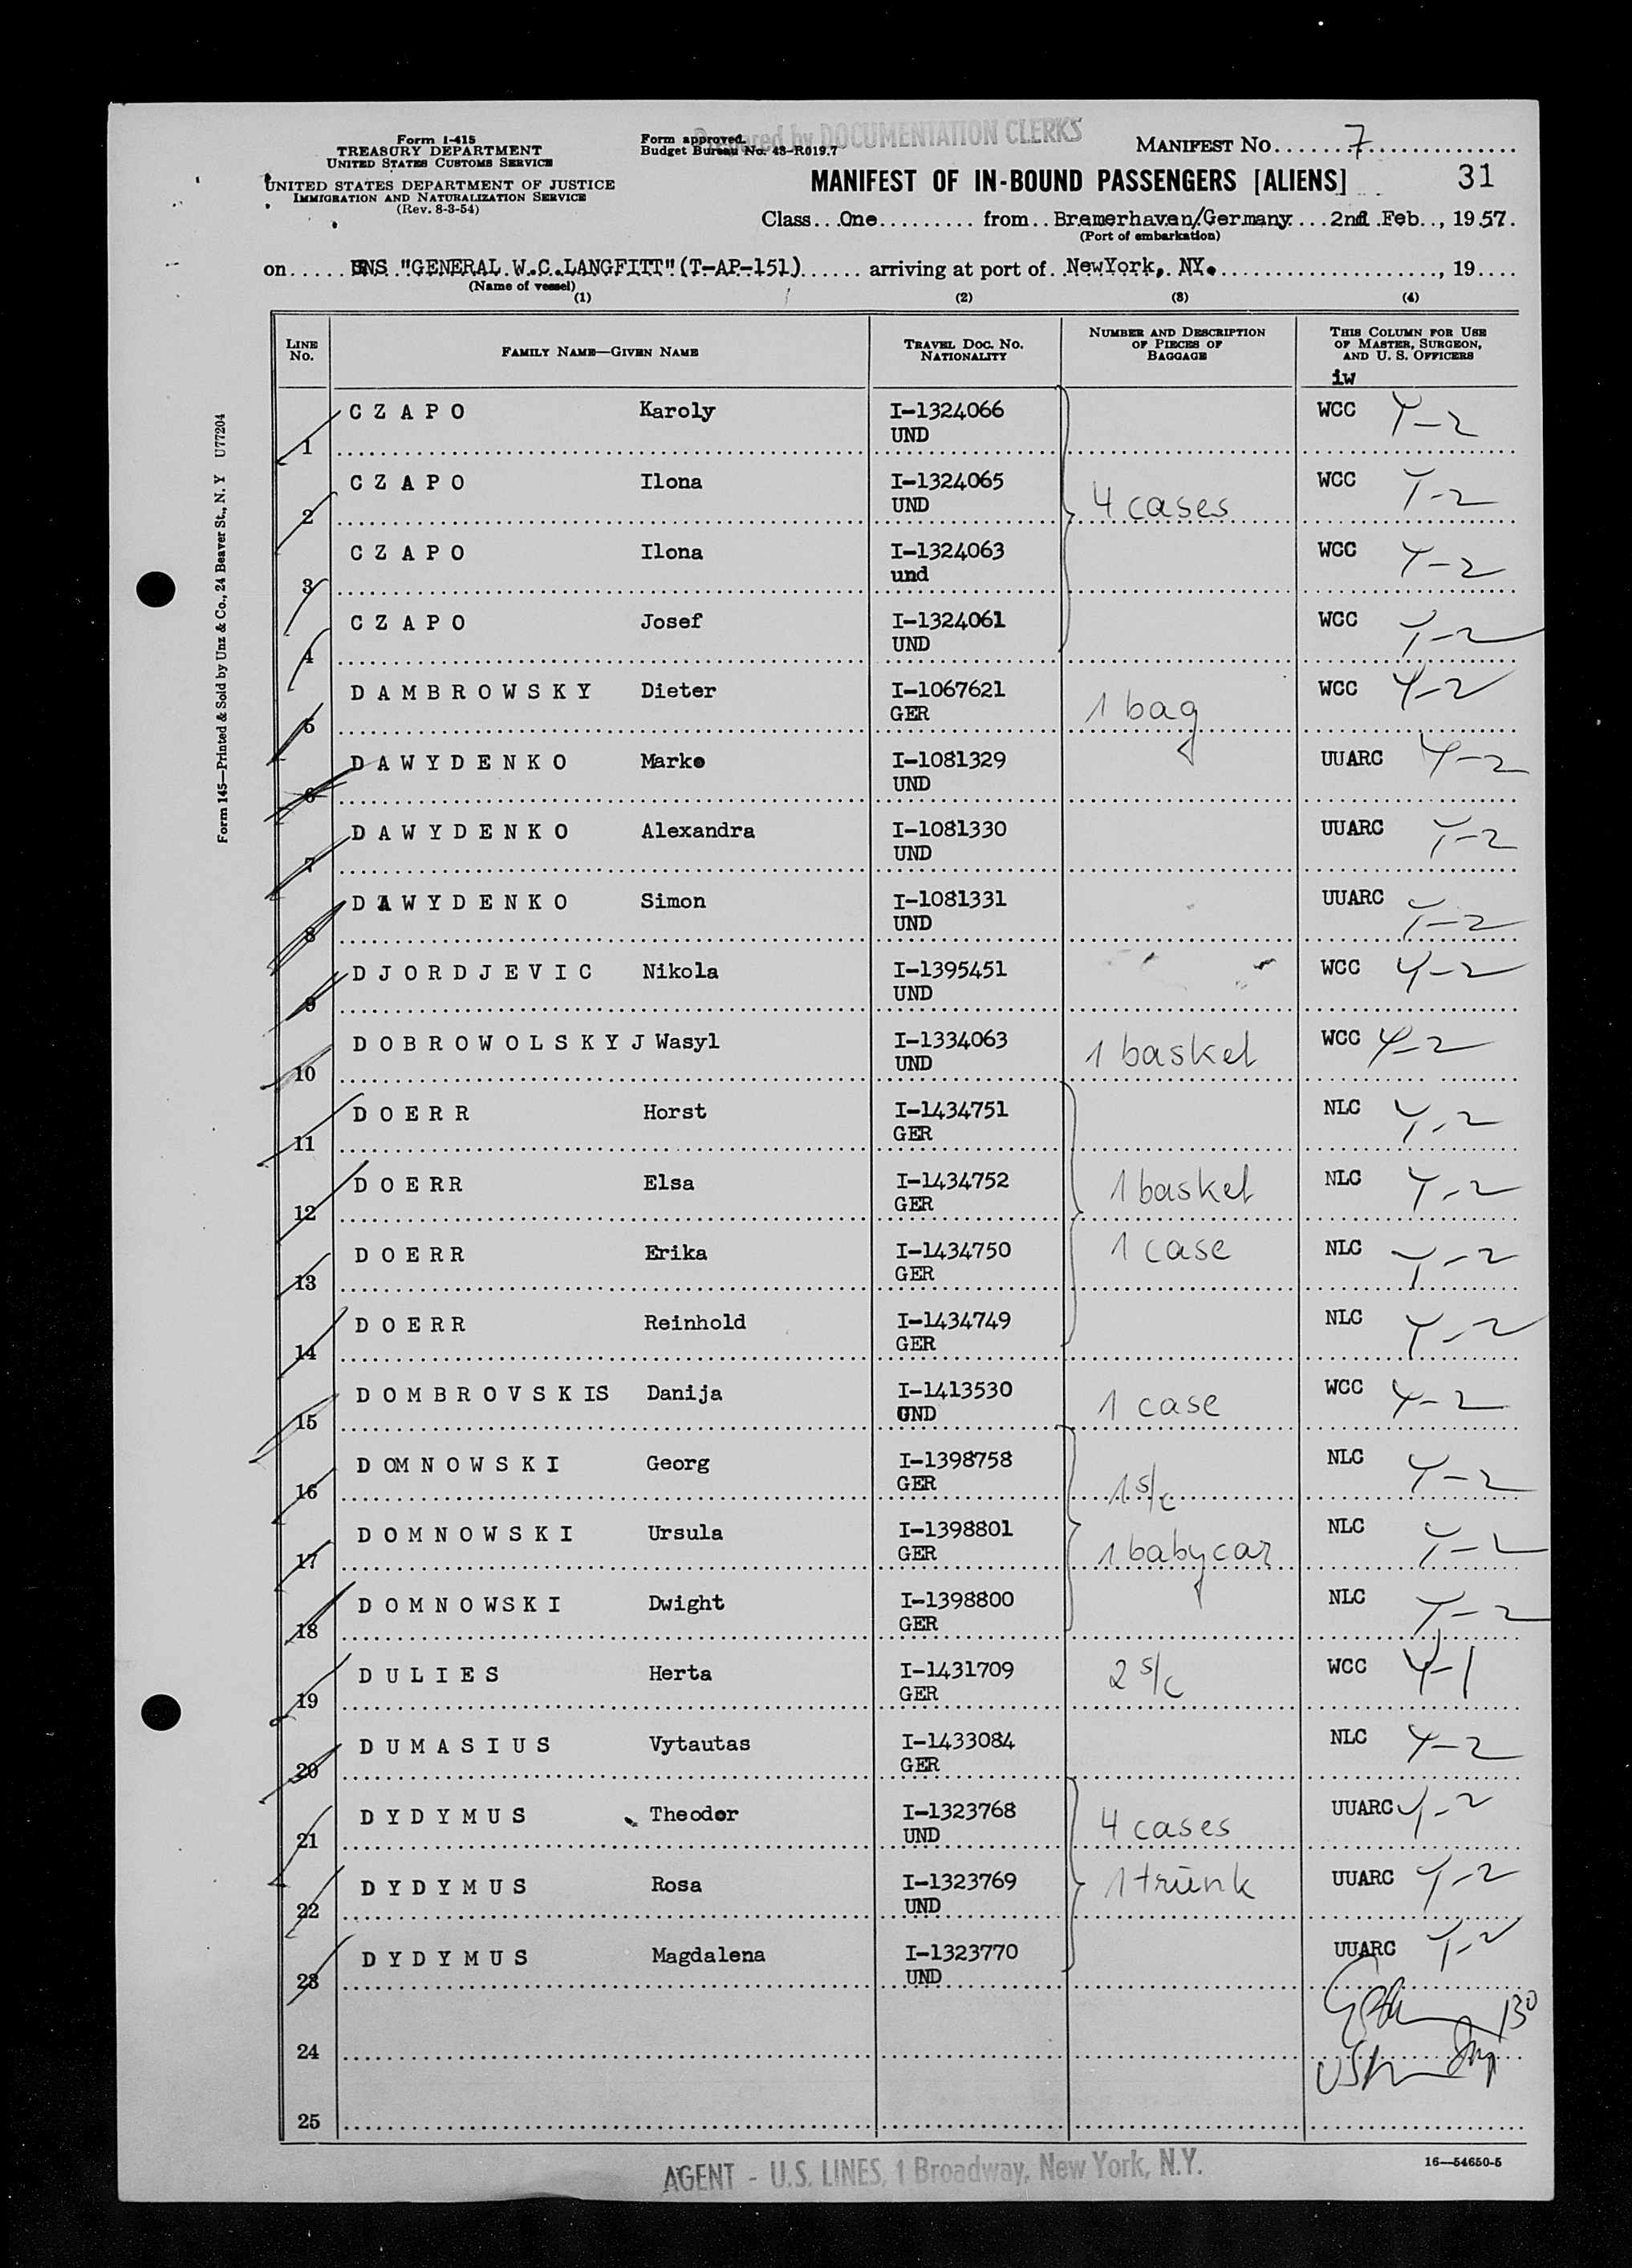 Form I-415
TREASURY DEPARTMENT
UNITED STATES CUSTOMS SERVICE
UNITED STATES DEPARTMENT OF JUSTICE
IMMIGRATION AND NATURALIZATION SERVICE
(Rev. 8-3-54)
Form approved.
Budget Bureau No. 43-R019.7
Prepared by DOCUMENTATION CLERKS
MANIFEST NO. 7
MANIFEST OF IN-BOUND PASSENGERS [ALIENS] 31
Class One from Bremerhaven/Germany 2nd Feb., 1957.
(Port of embarkation)
on USNS "GENERAL W.C.LANGFITT" (T-AP-151) arriving at port of NewYork, NY. , 19
(Name of vessel)
(1) (2) (3) (4)
LINE NO. FAMILY NAME—GIVEN NAME TRAVEL DOC. NO. NATIONALITY NUMBER AND DESCRIPTION OF PIECES OF BAGGAGE THIS COLUMN FOR USE OF MASTER, SURGEON, AND U. S. OFFICERS
iw
CZAPO Karoly I-1324066 WCC Y-2
1 UND
CZAPO Ilona I-1324065 WCC Y-2
2 UND 4 cases
CZAPO Ilona I-1324063 WCC Y-2
3 und
CZAPO Josef I-1324061 WCC Y-2
4 UND
DAMBROWSKY Dieter I-1067621 WCC Y-2
5 GER 1 bag
DAWYDENKO Marko I-1081329 UUARC Y-2
6 UND
DAWYDENKO Alexandra I-1081330 UUARC Y-2
7 UND
DAWYDENKO Simon I-1081331 UUARC Y-2
8 UND
DJORDJEVIC Nikola I-1395451 WCC Y-2
9 UND
DOBROWOLSKYJ Wasyl I-1334063 1 basket WCC Y-2
10 UND
DOERR Horst I-1434751 NLC Y-2
11 GER
DOERR Elsa I-1434752 1 basket NLC Y-2
12 GER
DOERR Erika I-1434750 1 case NLC Y-2
13 GER
DOERR Reinhold I-1434749 NLC Y-2
14 GER
DOMBROVSKIS Danija I-1413530 1 case WCC Y-2
15 UND
DOMNOWSKI Georg I-1398758 NLC Y-2
16 GER 1 s/c
DOMNOWSKI Ursula I-1398801 NLC Y-2
17 GER 1 babycar
DOMNOWSKI Dwight I-1398800 NLC Y-2
18 GER
DULIES Herta I-1431709 2 s/c WCC Y-1
19 GER
DUMASIUS Vytautas I-1433084 NLC Y-2
20 GER
DYDYMUS Theodor I-1323768 4 cases UUARC Y-2
21 UND
DYDYMUS Rosa I-1323769 1 trunk UUARC Y-2
22 UND
DYDYMUS Magdalena I-1323770 UUARC Y-2
23 UND
130
24
25
AGENT - U.S. LINES, 1 Broadway, New York, N.Y.
16—54650-5
Form 145—Printed & Sold by Unz & Co., 24 Beaver St., N. Y U77204